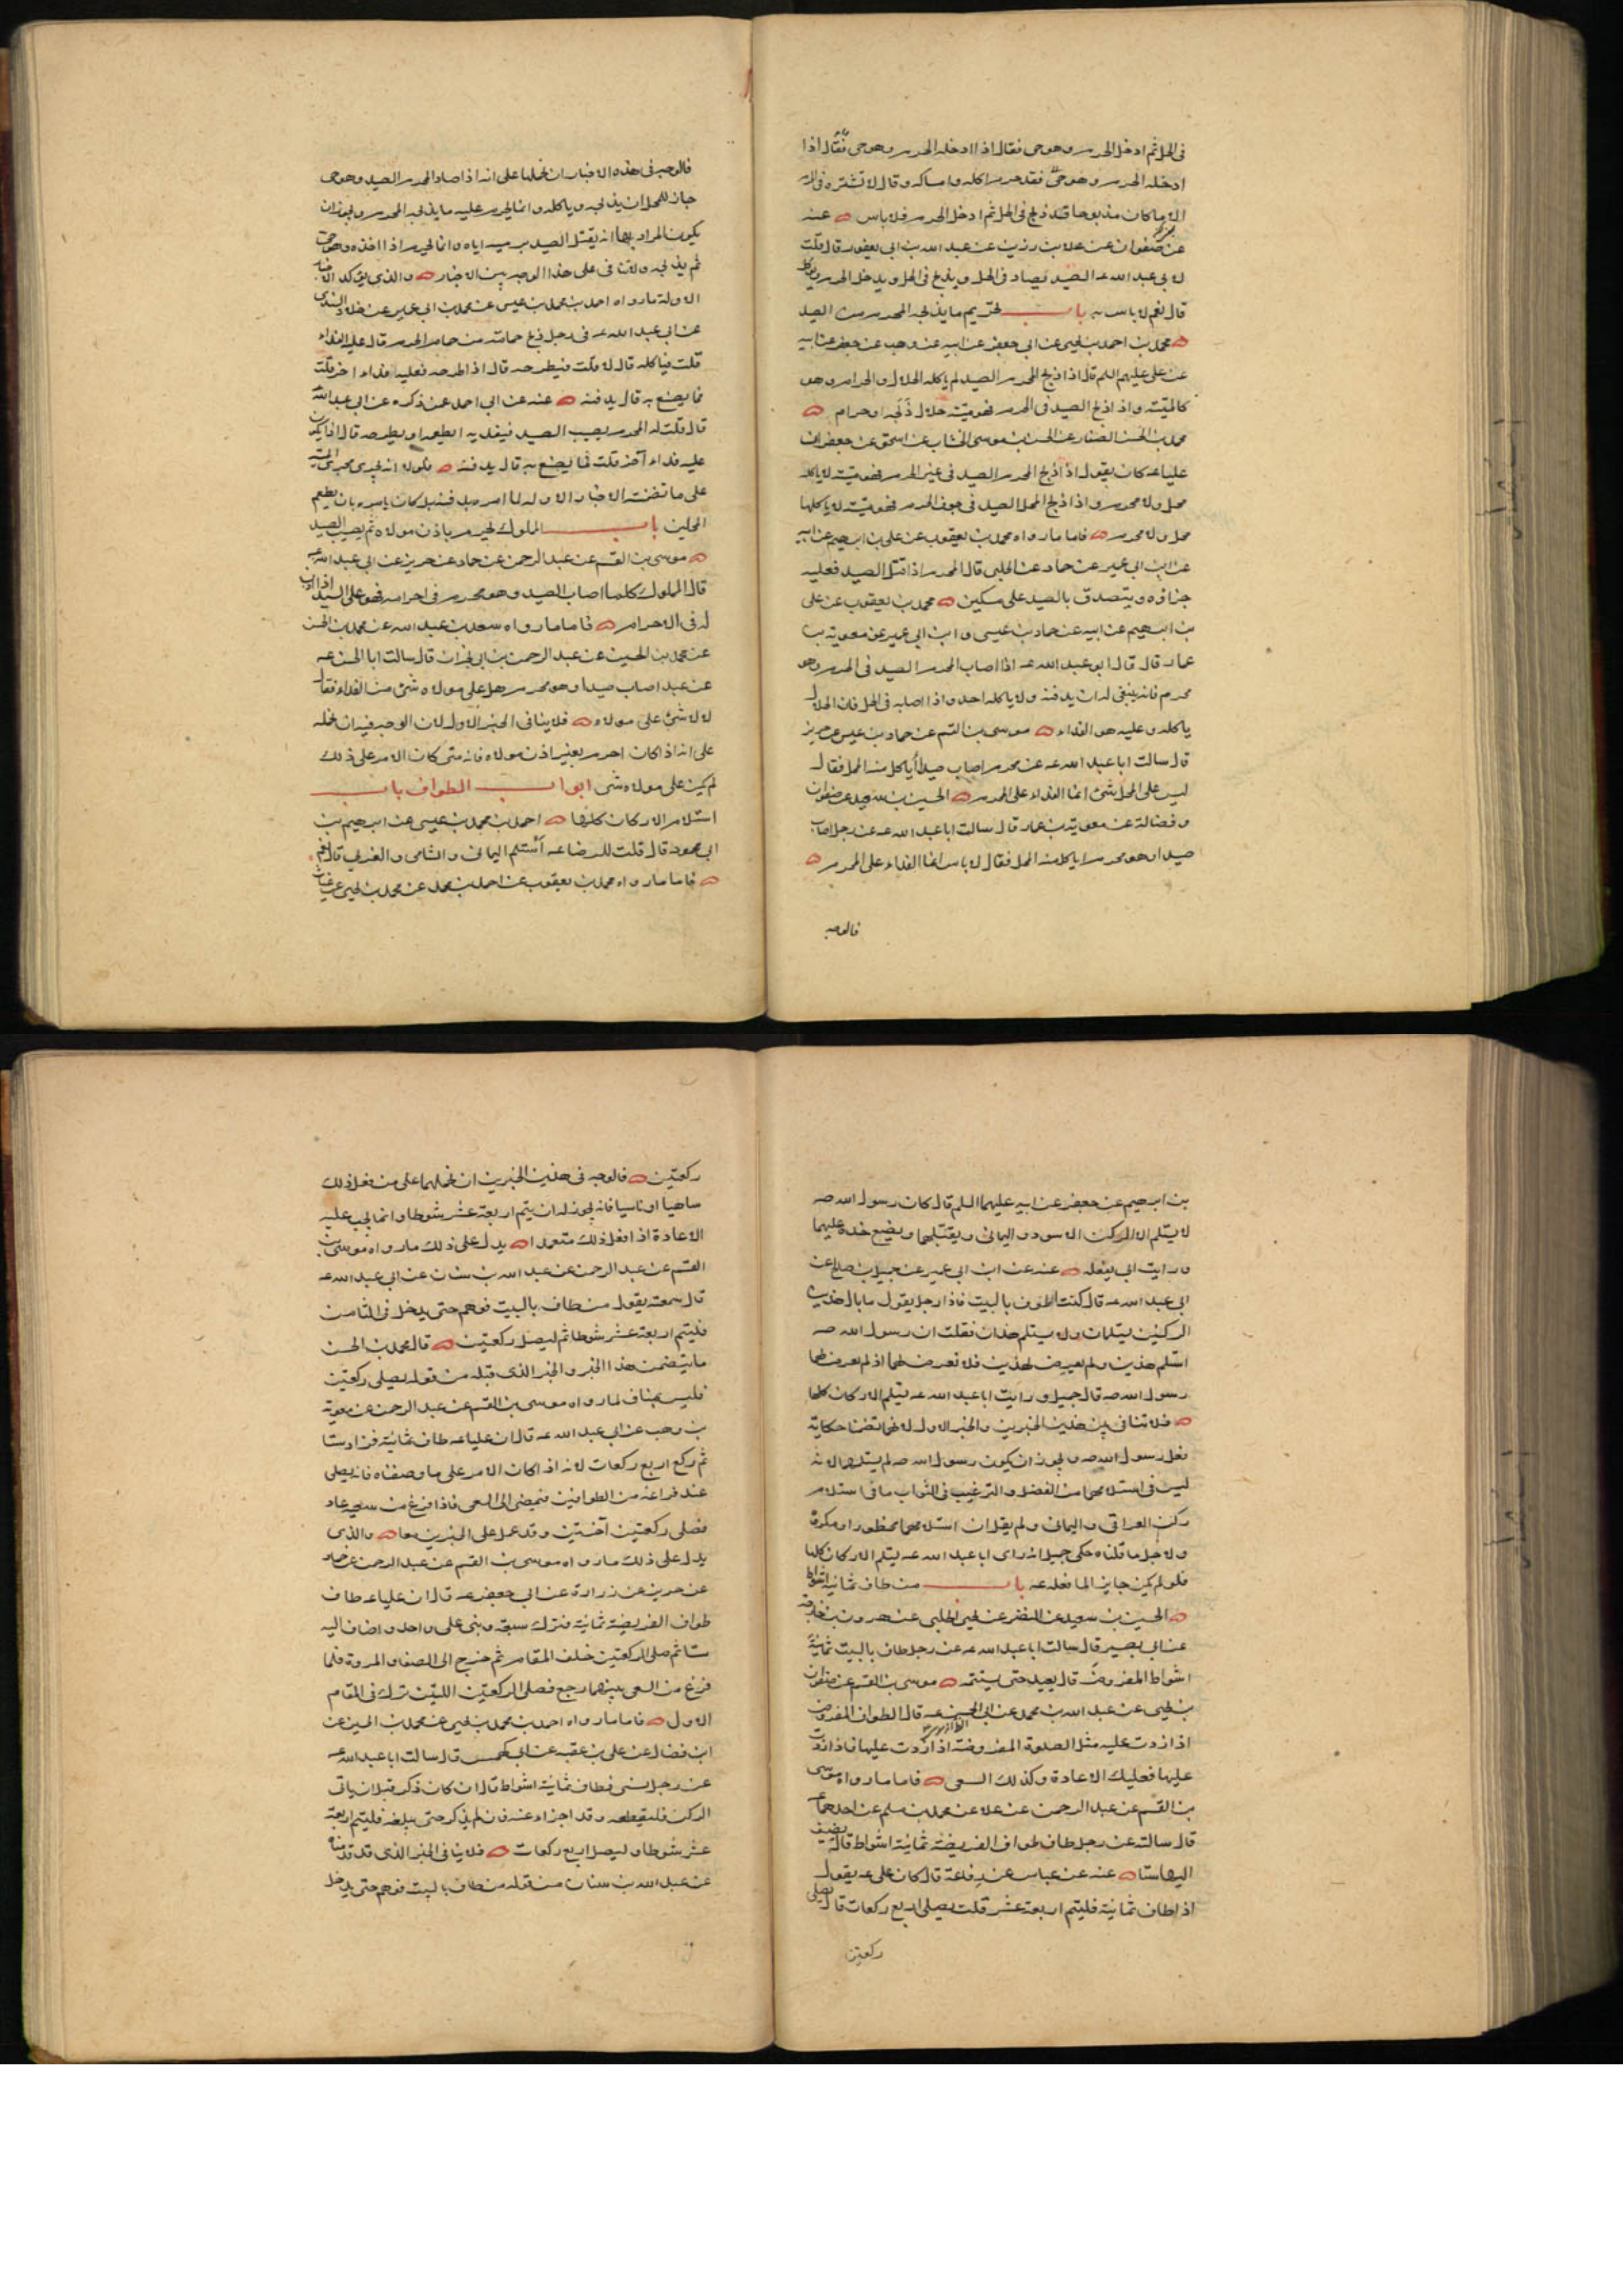 فى الحل ثم ادخل الحرم وهو حى فقال اذا ادخله الحرم وهو حى فقال اذا
ادخله الحرم وهو حىّ فقد حرم اكله وامساكه وقال لا تشتره فى الحرم
الا ما كان مذبوحا قد ذبح فى الحل ثم ادخل الحرم فلا باس عنه
عن صفوان عن علا بن رزين عن عبد الله بن ابى يعفور قال قلت
لابى عبد الله عه الصيد يصاد فى الحل ويذبح فى الحل ويدخل الحرم ويوكل
قال نعم لا باس به باب تحريم ما يذبحه المحرم من الصيد
محمد بن احمد بن يحيى عن ابى جعفر عن ابيه عن وهب عن جعفر عن ابيه
عن على عليهم السلم قال اذا ذبح المحرم الصيد لم ياكله الحلال والحرام وهو
كالميتة واذا ذبح الصيد فى الحرم فهو ميتة حلال ذَبَحه او حرام
محمد بن الحسن الصفار عن الحسن بن موسى الخشاب عن اسحق عن جعفر ان
عليا عه كان يقول اذا ذبح المحرم الصيد فى غير الحرم فهو ميتة لا ياكله
محل ولا محرم واذا ذبح المحل الصيد فى جوف الحرم فهو ميتة لا ياكلها
محل ولا محرم فاما ما رواه محمد بن يعقوب عن على بن ابرهيم عن ابيه
عن ابن ابى عمير عن حماد عن الحلبى قال المحرم اذا قتل الصيد فعليه
جزاؤه ويتصدق بالصيد على مسكين محمد بن يعقوب عن على
بن ابرهيم عن ابيه عن حماد بن عيسى وابن ابى عمير عن معوية بن
عمار قال قال ابو عبد الله عه اذا اصاب المحرم الصيد فى الحرم وهو
محرم فانه ينبغى له ان يدفنه ولا ياكله احد واذا اصابه فى الحل فان الحلال
ياكله وعليه هو الفداء موسى بن القسم عن حماد بن عيسى عن حريز
قال سالت ابا عبد الله عه عن محرم اصاب صيدا أياكل منه المحل فقال
ليس على المحل شئ انما الفداء على المحرم الحسين بن سعيد عن صفوان
وفضالة عن معوية بن عمار قال سالت ابا عبد الله عه عن رجل اصاب
صيدا وهو محرم اياكل منه المحل فقال لا باس انما الفداء على المحرم
فالوجه
فالوجه فى هذه الاخبار ان نحملها على انه اذا صاد المحرم الصيد وهو حى
جاز للمحل ان يذبحه وياكله وانما يحرم عليه ما يذبحه المحرم ويجوز ان
يكون المراد بها انه يقتل الصيد برميه اياه وانما يحرم اذا اخذه وهو حى
ثم يذبحه ولا تنافى على هذا الوجه بين الاخبار والذى يؤكد الاخبار
الاولة ما رواه احمد بن محمد بن عيسى عن محمد بن ابى عمير عن خلاد السندى
عن ابى عبد الله عه فى رجل ذبح حمامة من حمام الحرم قال عليه الفداء
قلت فياكله قال لا قلت فيطرحه قال اذا طرحه فعليه فداء اخر قلت
فما يصنع به قال يدفنه عنه عن ابى احمد عن ذكره عن ابى عبد الله
قال قلت له المحرم يصيب الصيد فيفديه ايطعمه او يطرحه قال اذا يكون
عليه فداء آخر قلت فما يصنع به قال يدفنه ولولا انه يجرى مجرى الميتة
على ما تضمنته الاخبار الاوله لما امره بدفنه بل كان يامره بان يطعم
المحلين باب المملوك يحرم باذن مولاه ثم يصيب الصيد
موسى بن القسم عن عبد الرحمن عن حماد عن حريز عن ابى عبد الله عه
قال المملوك كلما اصاب الصيد وهو محرم فى احرامه فهو على السيد اذا اذن
له فى الاحرام فاما ما رواه سعد بن عبد الله عن محمد بن الحسن
عن محمد بن الحسين عن عبد الرحمن بن ابى نجران قال سالت ابا الحسن عه
عن عبد اصاب صيدا وهو محرم هل على مولاه شئ من الفداء فقال
لا لا شئ على مولاه فلا ينافى الخبر الاول لان الوجه فيه ان نحمله
على انه اذا كان احرم بغير اذن مولاه فانه متى كان الامر على ذلك
لم يكن على مولاه شى ابواب الطواف باب
استلام الاركان كلها احمد بن محمد بن عيسى عن ابرهيم بن
ابى محمود قال قلت للرضا عه أستلم اليمانى والشامى والغربى قال نعم
فاما ما رواه محمد بن يعقوب عن احمد بن محمد عن محمد بن يحيى عن غياث
بن ابرهيم عن جعفر عن ابيه عليهما السلم قال كان رسول الله صه
لا يستلم الا الركن الاسود واليمانى ويقبلهما ويضع خده عليهما
ورايت ابى يفعله عنه عن ابن ابى عمير عن جميل بن صالح عن
ابى عبد الله عه قال كنت اطوف بالبيت فاذا رجل يقول ما بال هذين
الركنين يستلمان ولا يستلم هذان فقلت ان رسول الله صه
استلم هذين ولم يعرض لهذين فلا تعرض لهما اذ لم يعرض لهما
رسول الله صه قال جميل ورايت ابا عبد الله عه يستلم الاركان كلها
فلا تنافى بين هذين الخبرين والخبر الاول لانهما تضمنا حكاية
فعل رسول الله صه ويجوز ان يكون رسول الله صه لم يستلمهما لانه
ليس فى استلامهما من الفضل والترغيب فى الثواب ما فى استلام
ركن العراقى واليمانى ولم يقل ان استلامهما محظور او مكروه
ولاجل ما قلناه حكى جميل انه راى ابا عبد الله عه يستلم الاركان كلها
فلو لم يكن جايزا لما فعله عه باب من طاف ثمانية اشواط
الحسين بن سعيد عن النضر عن يحيى الحلبى عن هرون بن خارجة
عن ابى بصير قال سالت ابا عبد الله عه عن رجل طاف بالبيت ثمانية
اشواط المفروض قال يعيد حتى يستتمه موسى بن القسم عن صفوان
بن يحيى عن عبد الله بن محمد عن ابى الحسن عه قال الطواف المفروض
اذا زدت عليه مثل الصلوة المفروضة اذا زدت عليها فاذا زدت
عليها فعليك الاعادة وكذلك السعى فاما ما رواه موسى
بن القسم عن عبد الرحمن عن علا عن محمد بن مسلم عن احدهما عه
قال سالته عن رجل طاف طواف الفريضة ثمانية اشواط قال يضيف
اليها ستا عنه عن عباس عن رفاعة قال كان على عه يقول
اذا طاف ثمانية فليتم اربعة عشر قلت يصلى اربع ركعات قال يصلى
ركعتين
ركعتين فالوجه فى هذين الخبرين ان نحملهما على من فعل ذلك
ساهيا او ناسيا فانه يجوز له ان يتم اربعة عشر شوطا وانما يجب عليه
الاعادة اذا فعل ذلك متعمدا يدل على ذلك ما رواه موسى بن
القسم عن عبد الرحمن عن عبد الله بن سنان عن ابى عبد الله عه
قال سمعته يقول من طاف بالبيت فوهم حتى يدخل فى الثامن
فليتم اربعة عشر شوطا ثم ليصل ركعتين قال محمد بن الحسن
ما يتضمن هذا الخبر والخبر الذى قبله من قوله يصلى ركعتين
فليس بمناف لما رواه موسى بن القسم عن عبد الرحمن عن معوية
بن وهب عن ابى عبد الله عه قال ان عليا عه طاف ثمانية فزاد ستا
ثم ركع اربع ركعات لانه اذا كان الامر على ما وصفناه فانه يصلى
عند فراغه من الطوافين فيمضى الى السعى فاذا فرغ من سعيه عاد
فصلى ركعتين آخرتين وقد عمل على الخبرين معا والذى
يدل على ذلك ما رواه موسى بن القسم عن عبد الرحمن عن حماد
عن حريز عن زرارة عن ابى جعفر عه قال ان عليا عه طاف
طواف الفريضة ثمانية فترك سبعة وبنى على واحد واضاف اليه
ستا ثم صلى الركعتين خلف المقام ثم خرج الى الصفا والمروة فلما
فرغ من السعى بينهما رجع فصلى الركعتين اللتين ترك فى المقام
الاول فاما ما رواه احمد بن محمد بن يحيى عن محمد بن الحسين عن
ابن فضال عن على بن عقبه عن ابى كهمس قال سالت ابا عبد الله عه
عن رجل نسى فطاف ثمانية اشواط قال ان كان ذكر قبل ان ياتى
الركن فليقطعه وقد اجزاء عنه وان لم يذكر حتى بلغه فليتم اربعة
عشر شوطا وليصل اربع ركعات فلا ينافى الخبر الذى قد قدمناه
عن عبد الله بن سنان من قوله من طاف بالبيت فوهم حتى يدخل